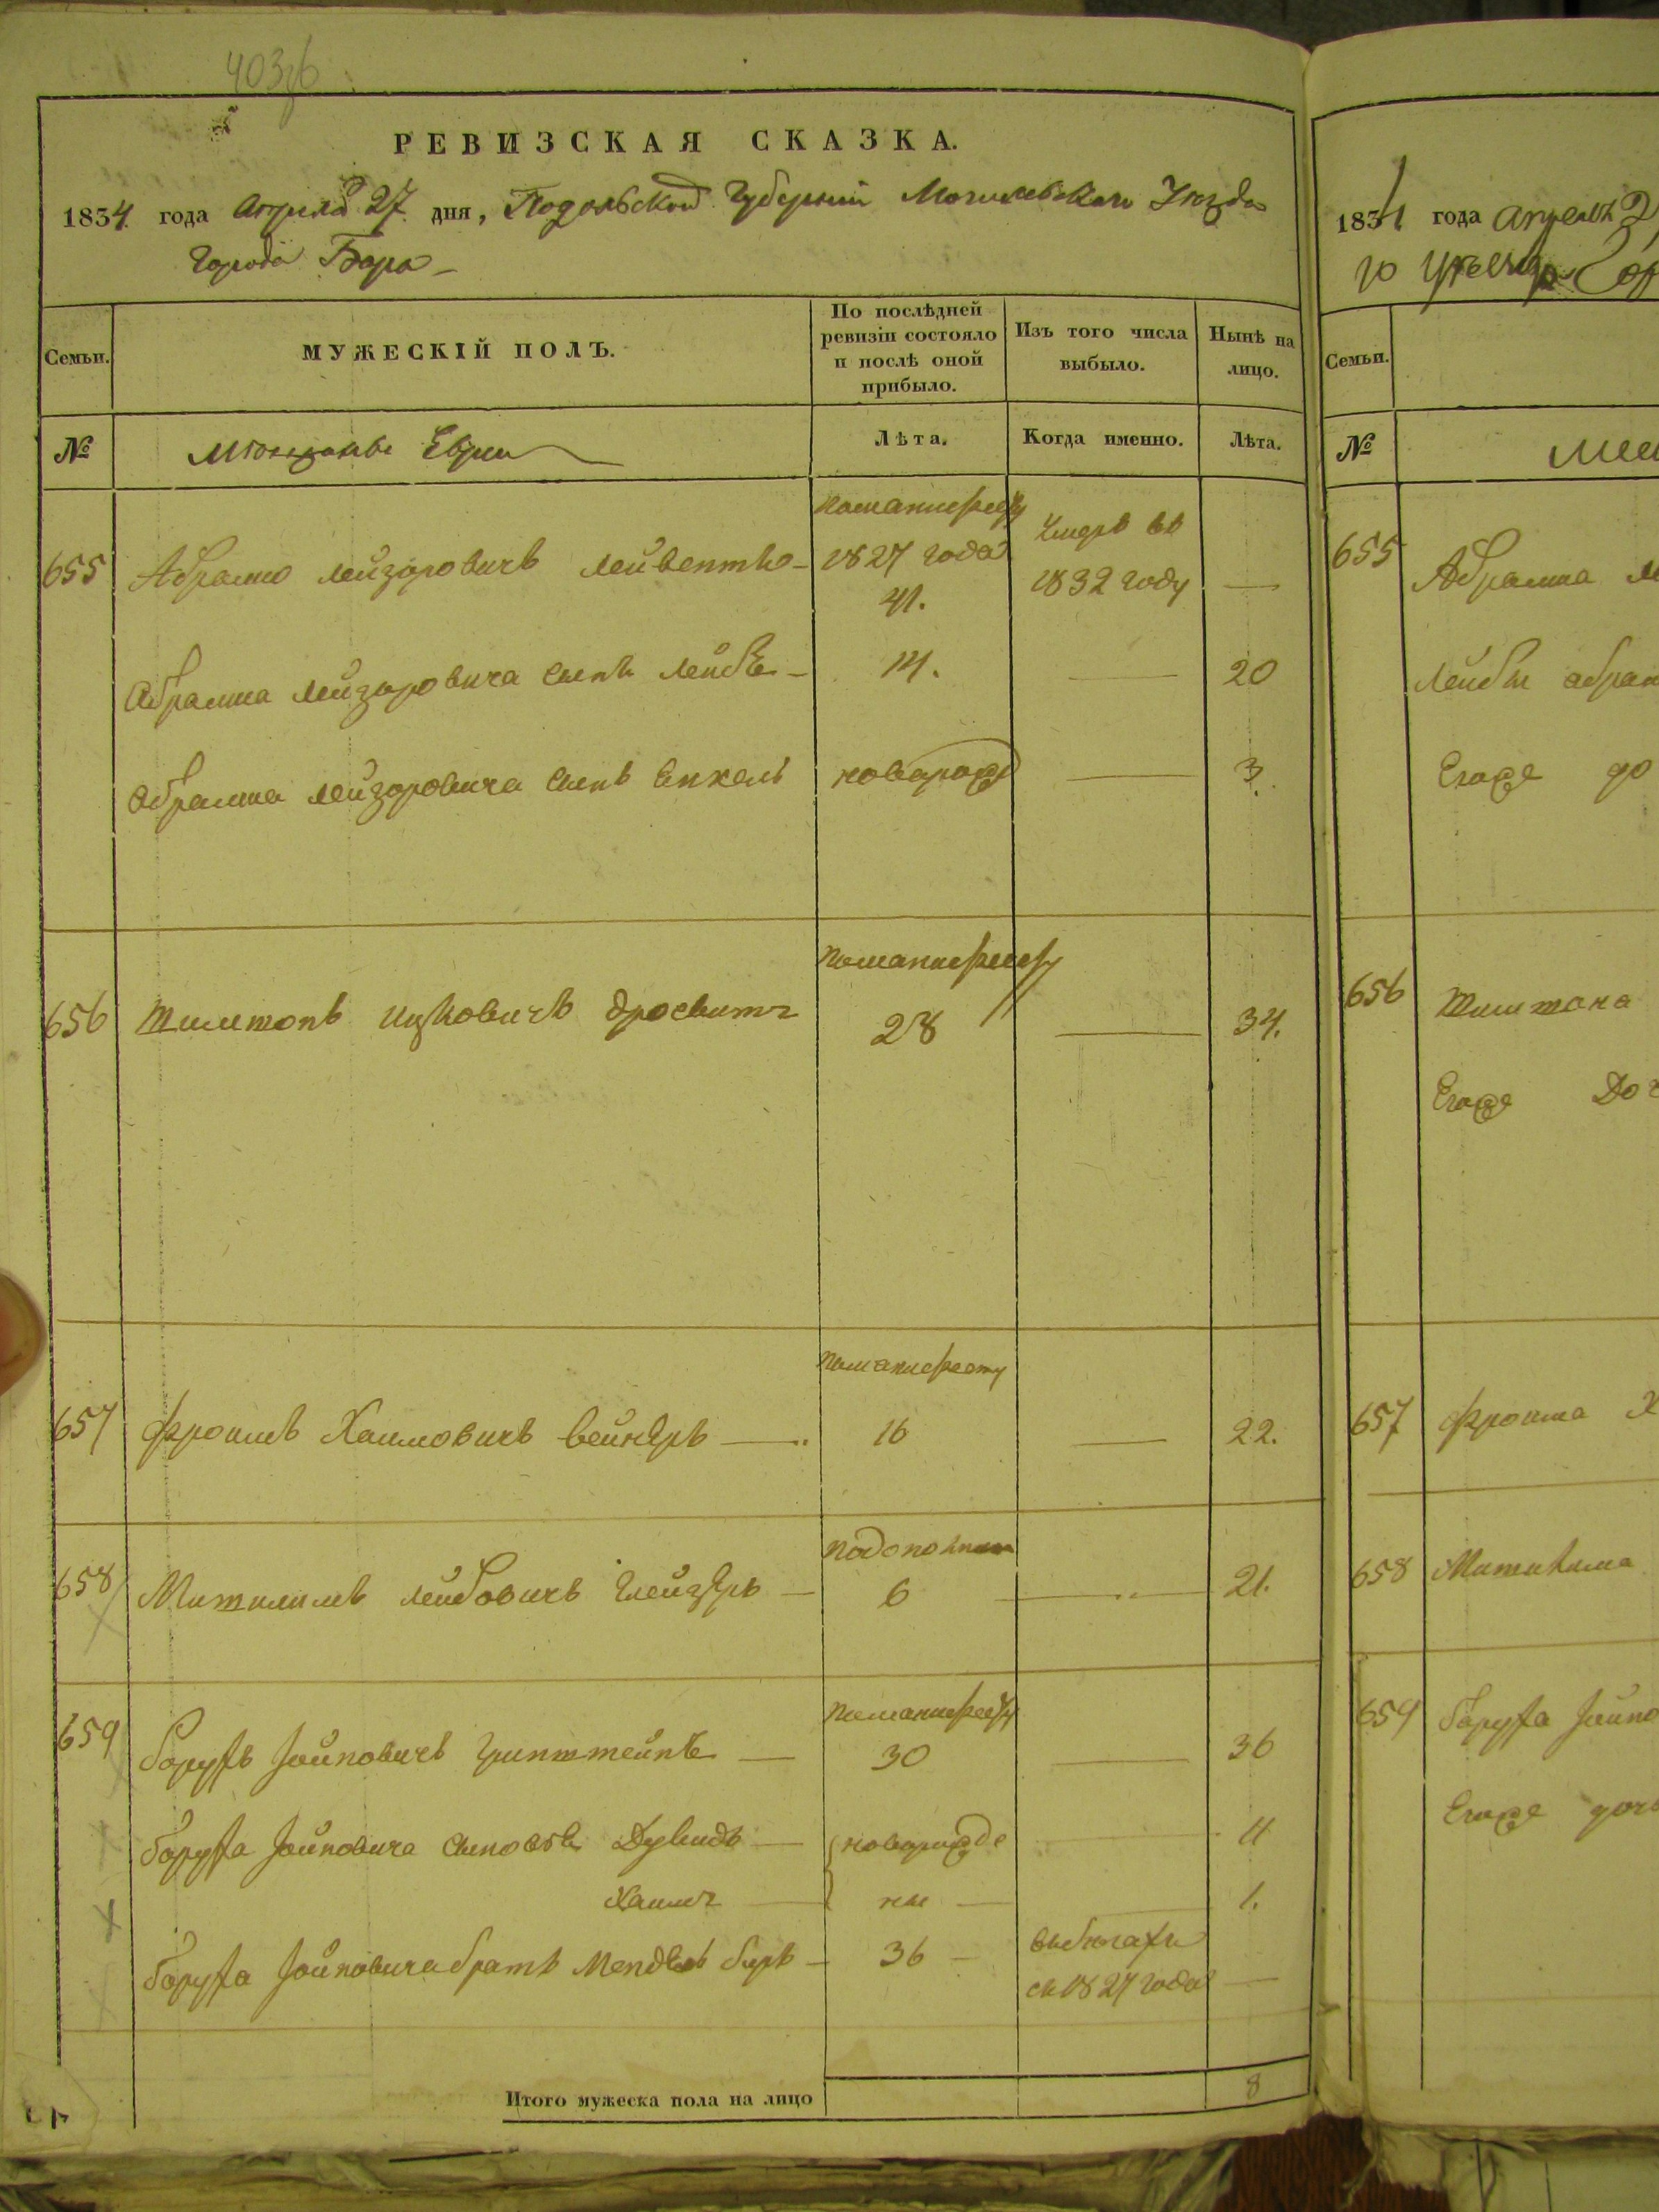 403об
РЕВИЗСКАЯ СКАЗКА.
1834 года Апреля 27 дня, Подольской Губернии Могилевского Уезда
Города Бара
Семьи.
МУЖЕСКІЙ ПОЛЪ.
По послѣдней ревизіи состояло и послѣ оной прибыло.
Изъ того числа выбыло.
Нынѣ на лицо.
№
Мещане Евреи
Лѣта.
Когда именно.
Лѣта.
поманифесту
655 Абрамко Лейзоровичъ 1827 года Умеръ въ
41. 1832 году —
Абрамка Лейзоровича сынъ Лейба 14. — 20
Абрамка Лейзоровича сынъ Енкель новорож — 3.
поманифесту
656 Шимшонъ Ицковичъ 28 — 34.
поманифесту
657 Фроимъ Хаимовичъ Вейнеръ — 16 — 22.
658 Лейбовичъ Глейзеръ — 6 — 21.
поманифесту
659 Борухъ Іойновичъ Гринштейнъ — 30 — 36
Боруха Іойновича сыновья Дувидъ — новорожде — 4
Хаимъ — ны — 1.
Боруха Іойновича братъ Мендель Беръ — 36 — въ бегахъ
съ 1827 года —
Итого мужеска пола на лицо 8
1834 года Апреля 2
Семьи.
№
655 Абрамка
Лейбы Абрам
Егоже до
656 Шимшона
Егоже Доч
657 Фроима Х
658
659 Боруха Іойно
Егоже доч